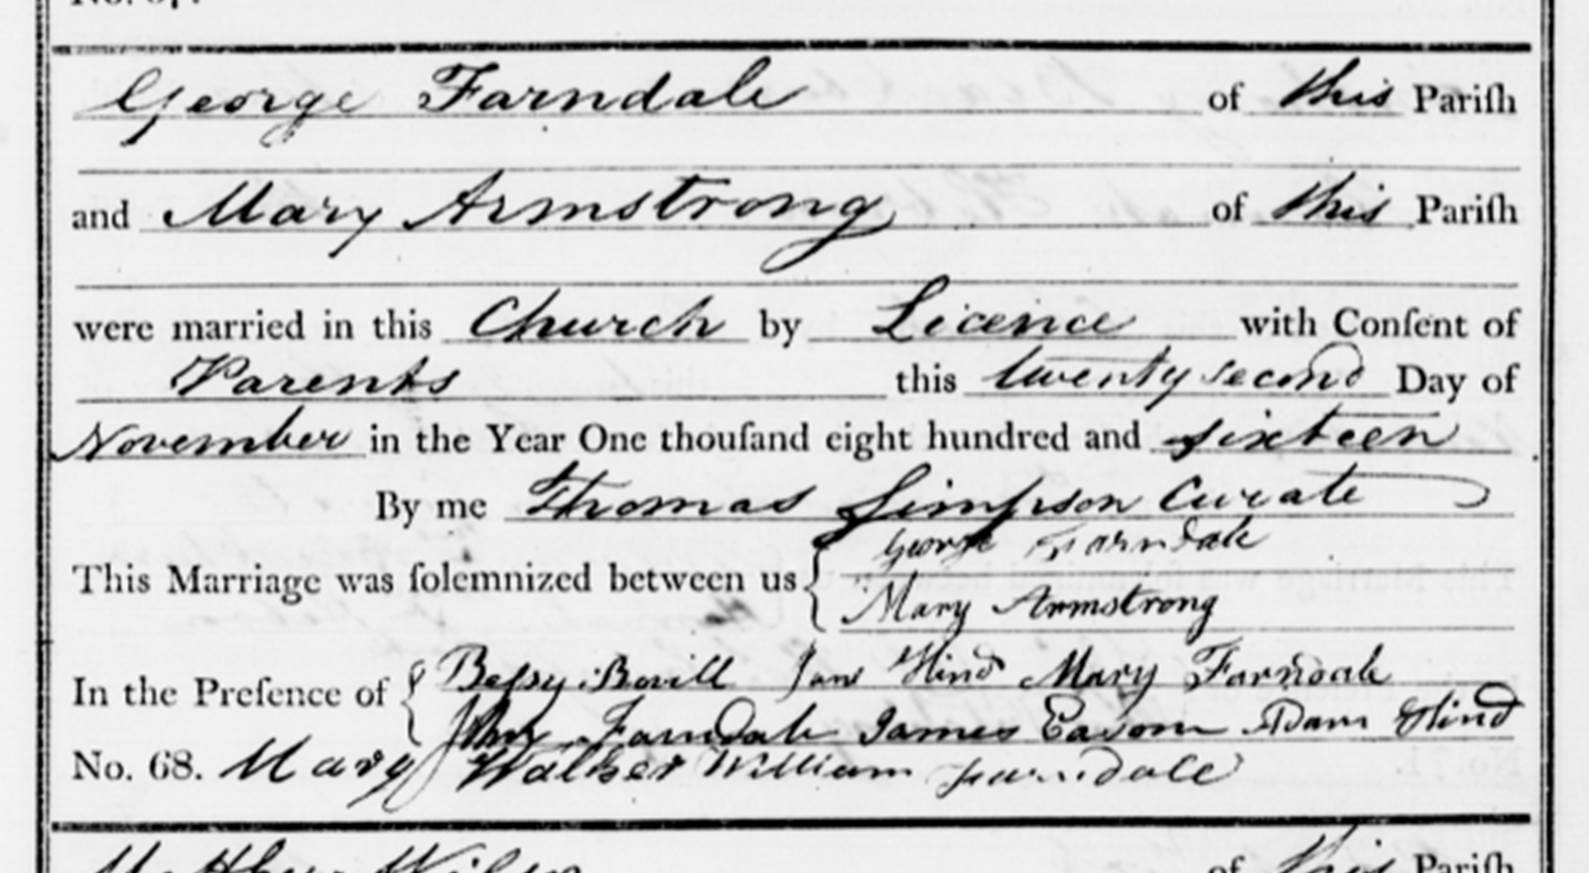 George Farndale of this Pariſh
and Mary Armstrong of this Pariſh
were married in this Church by Licence with Conſent of
Parents this twenty second Day of
November in the Year One thouſand eight hundred and sixteen
By me Thomas Simpson Curate
George Farndale
This Marriage was ſolemnized between us
Mary Armstrong
Beſsy Bovill Jane Hind Mary Farndale
In the Preſence of
John Farndale James Easom Adam Hind
No. 68. Mary Walker William Farndale
of this Pariſh